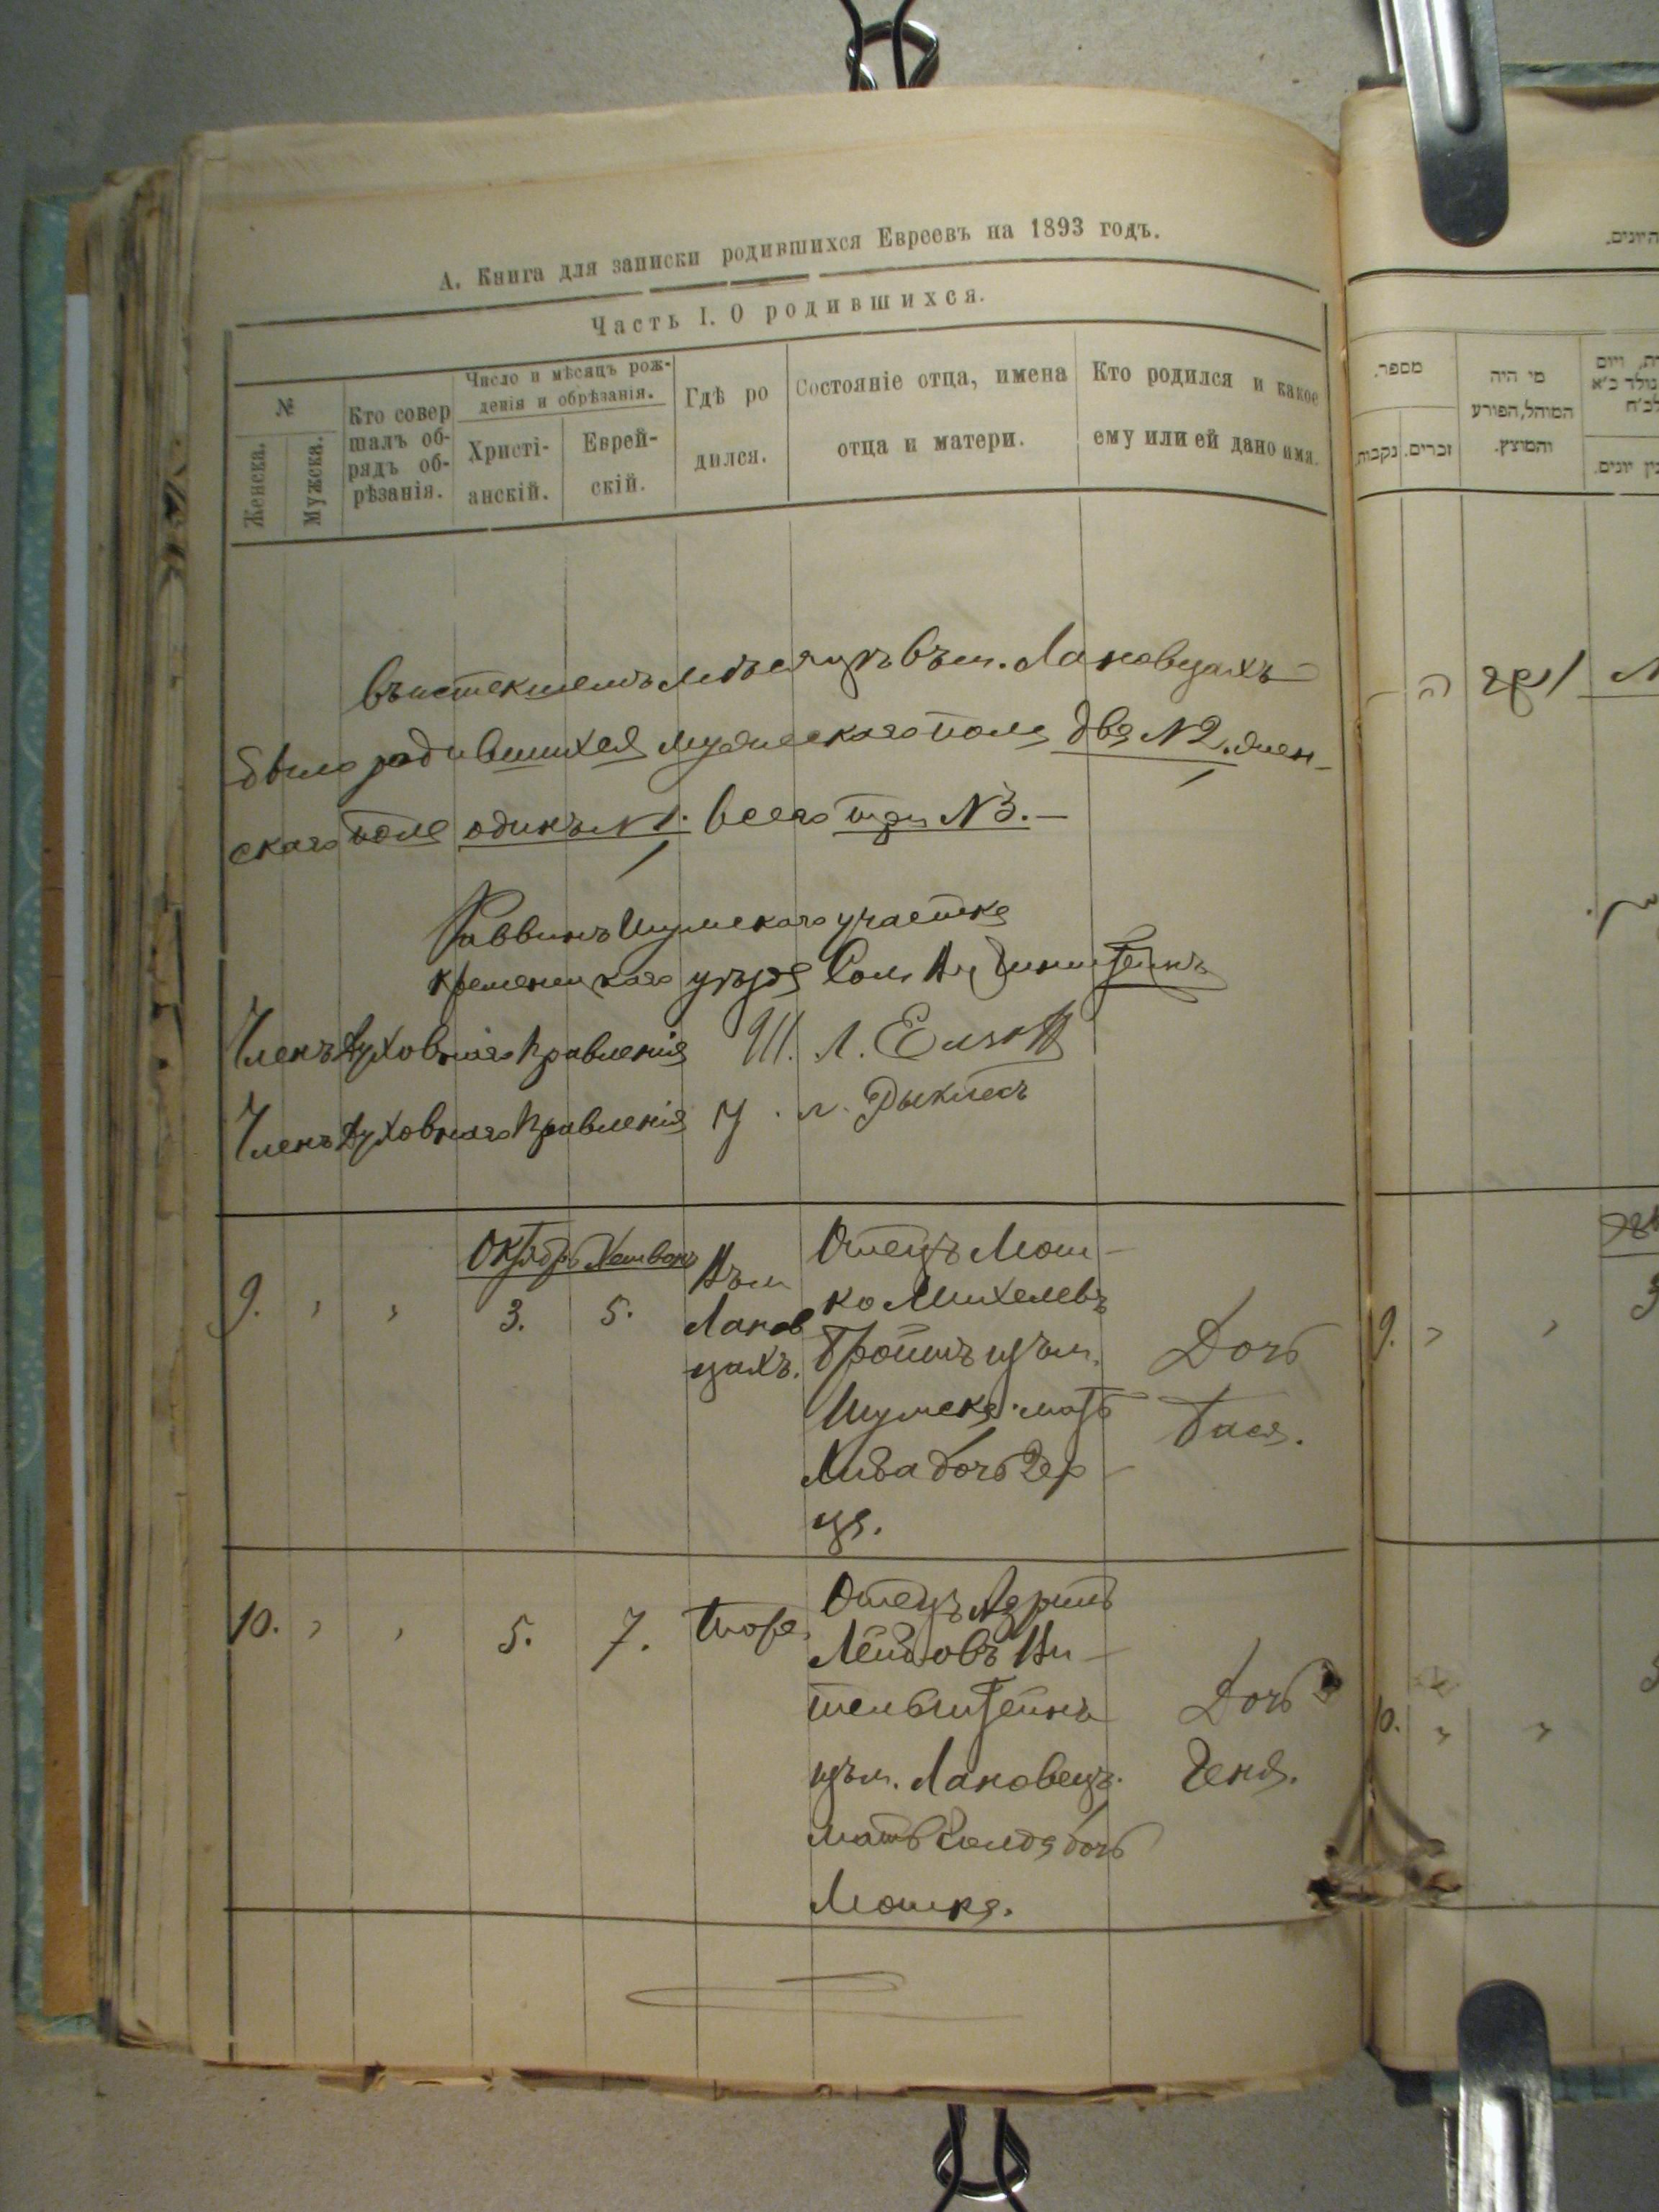 А. Книга для записки родившихся Евреевъ на 1893 годъ.
Часть I. О родившихся.
№
Женска.
Мужска.
Кто совер
шалъ об-
рядъ об-
рѣзанія.
Число и мѣсяцъ рож-
денія и обрѣзанія.
Христі-
анскій.
Еврей-
скій.
Гдѣ ро
дился.
Состояніе отца, имена
отца и матери.
Кто родился и какое
ему или ей дано имя.
Въ истекшемъ мѣсяцѣ въ м. Лановцахъ
было родившихся мужескаго пола два №2. жен-
скаго пола одинъ №1. всего три №3.
Раввинъ Шумскаго участка
Кременецкаго уѣзда
Членъ Духовнаго Правленія Ш. Л.
Членъ Духовнаго Правленія
Октябрь Хешвонъ
9. 3. 5.
Въ м
Ланов
цахъ.
Отецъ Мош-
ко Михелевъ
Тройтъ изъ м.
Шумска. мать
Хива дочь Гер-
ца.
Дочь
Бася.
10. 5. 7. Тоже
Отецъ
Лейбовъ Ви-
тельштейнъ
изъ м. Лановецъ.
мать Голда дочь
Мошка.
Дочь
Геня.
היונים.
מספר.
נקבות.
זכרים.
מי היה
המוהל, הפורע
והמוצץ.
9.